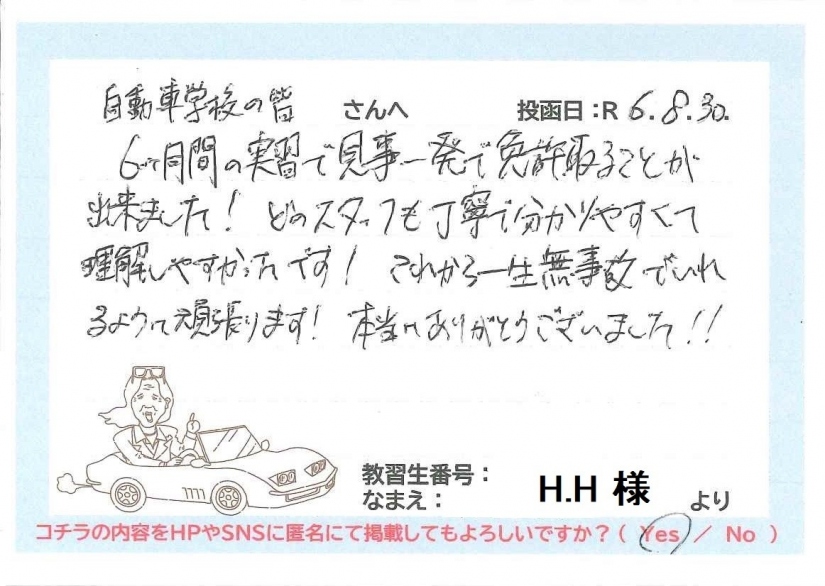 自動車学校の皆 さんへ 投函日:R 6.8.30.
6ヶ月間の実習で見事一発で免許取ることが
出来ました! どのスタッフも丁寧で分かりやすくて
理解しやすかったです! これから一生無事故でいれ
るように頑張ります! 本当にありがとうございました!!
教習生番号:
なまえ: H.H 様 より
コチラの内容をHPやSNSに匿名にて掲載してもよろしいですか?( Yes / No )